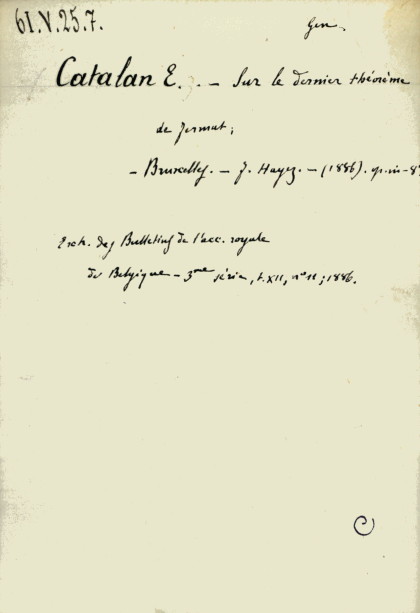 61.V.25.7.
Gen.
Catalan E. . — Sur le dernier théorème
de Fermat;
— Bruxelles. — F. Hayez. — (1886). in-8°
Extr. des Bulletins de l'acc. royale
de Belgique — 3me série, t. XII, n° 11; 1886.